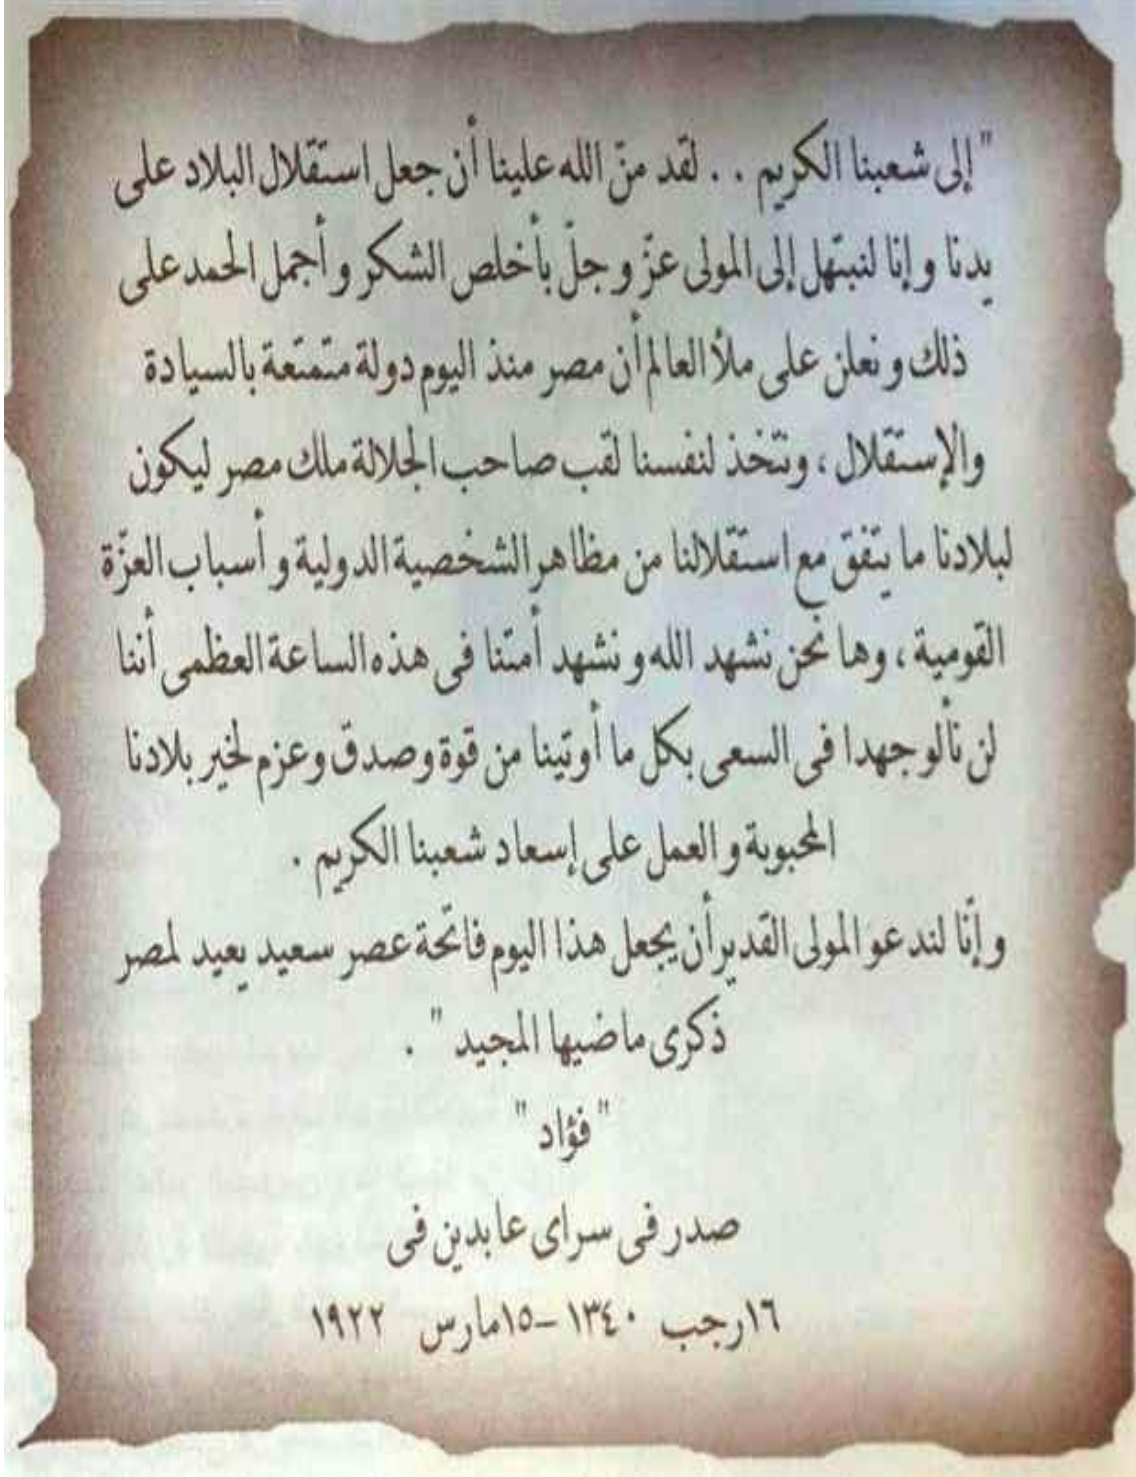 " إلى شعبنا الكريم . . لقد منّ الله علينا أن جعل استقلال البلاد على
يدنا و إنا لنبتهل إلى المولى عزّ و جلّ بأخلص الشكر و أجمل الحمد على
ذلك و نعلن على ملأ العالم أن مصر منذ اليوم دولة متمتعة بالسيادة
والإستقلال ، ونتخذ لنفسنا لقب صاحب الجلالة ملك مصر ليكون
لبلادنا ما يتفق مع استقلالنا من مظاهر الشخصية الدولية و أسباب العزّة
القومية ، وها نحن نشهد الله و نشهد أمتنا فى هذه الساعة العظمى أننا
لن نألو جهدا فى السعى بكل ما أوتينا من قوة وصدق وعزم لخير بلادنا
المحبوبة و العمل على إسعاد شعبنا الكريم .
و إنّا لندعو المولى القدير أن يجعل هذا اليوم فاتحة عصر سعيد يعيد لمصر
ذكرى ماضيها المجيد " .
" فؤاد "
صدر فى سراى عابدين فى
١٦رجب ١٣٤٠ –١٥مارس ١٩٢٢